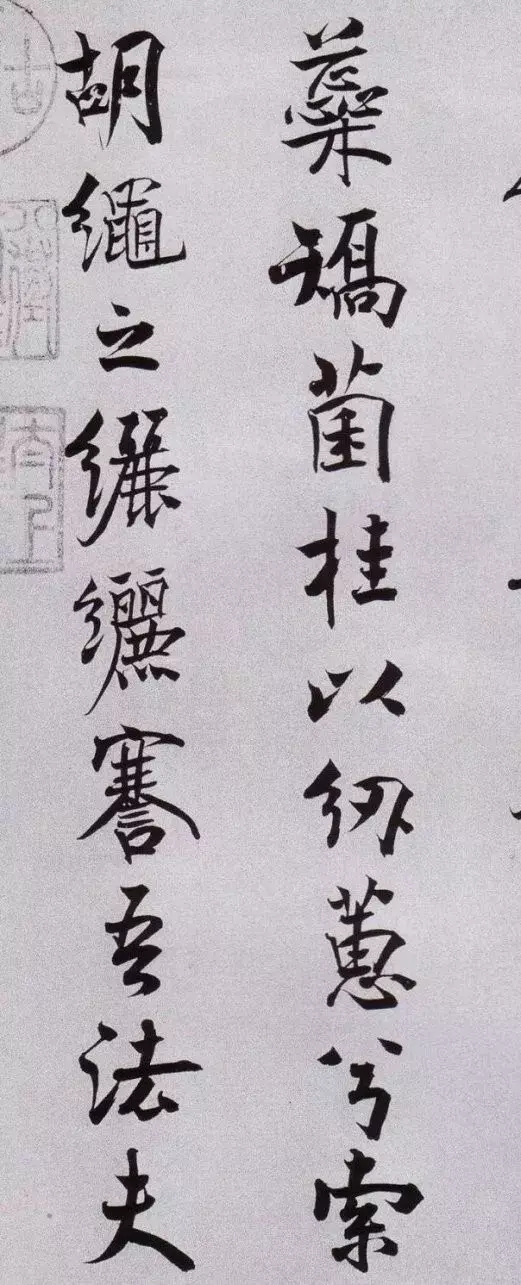 蘂矯菌桂以纫蕙兮索
胡繩之纚纚謇吾法夫